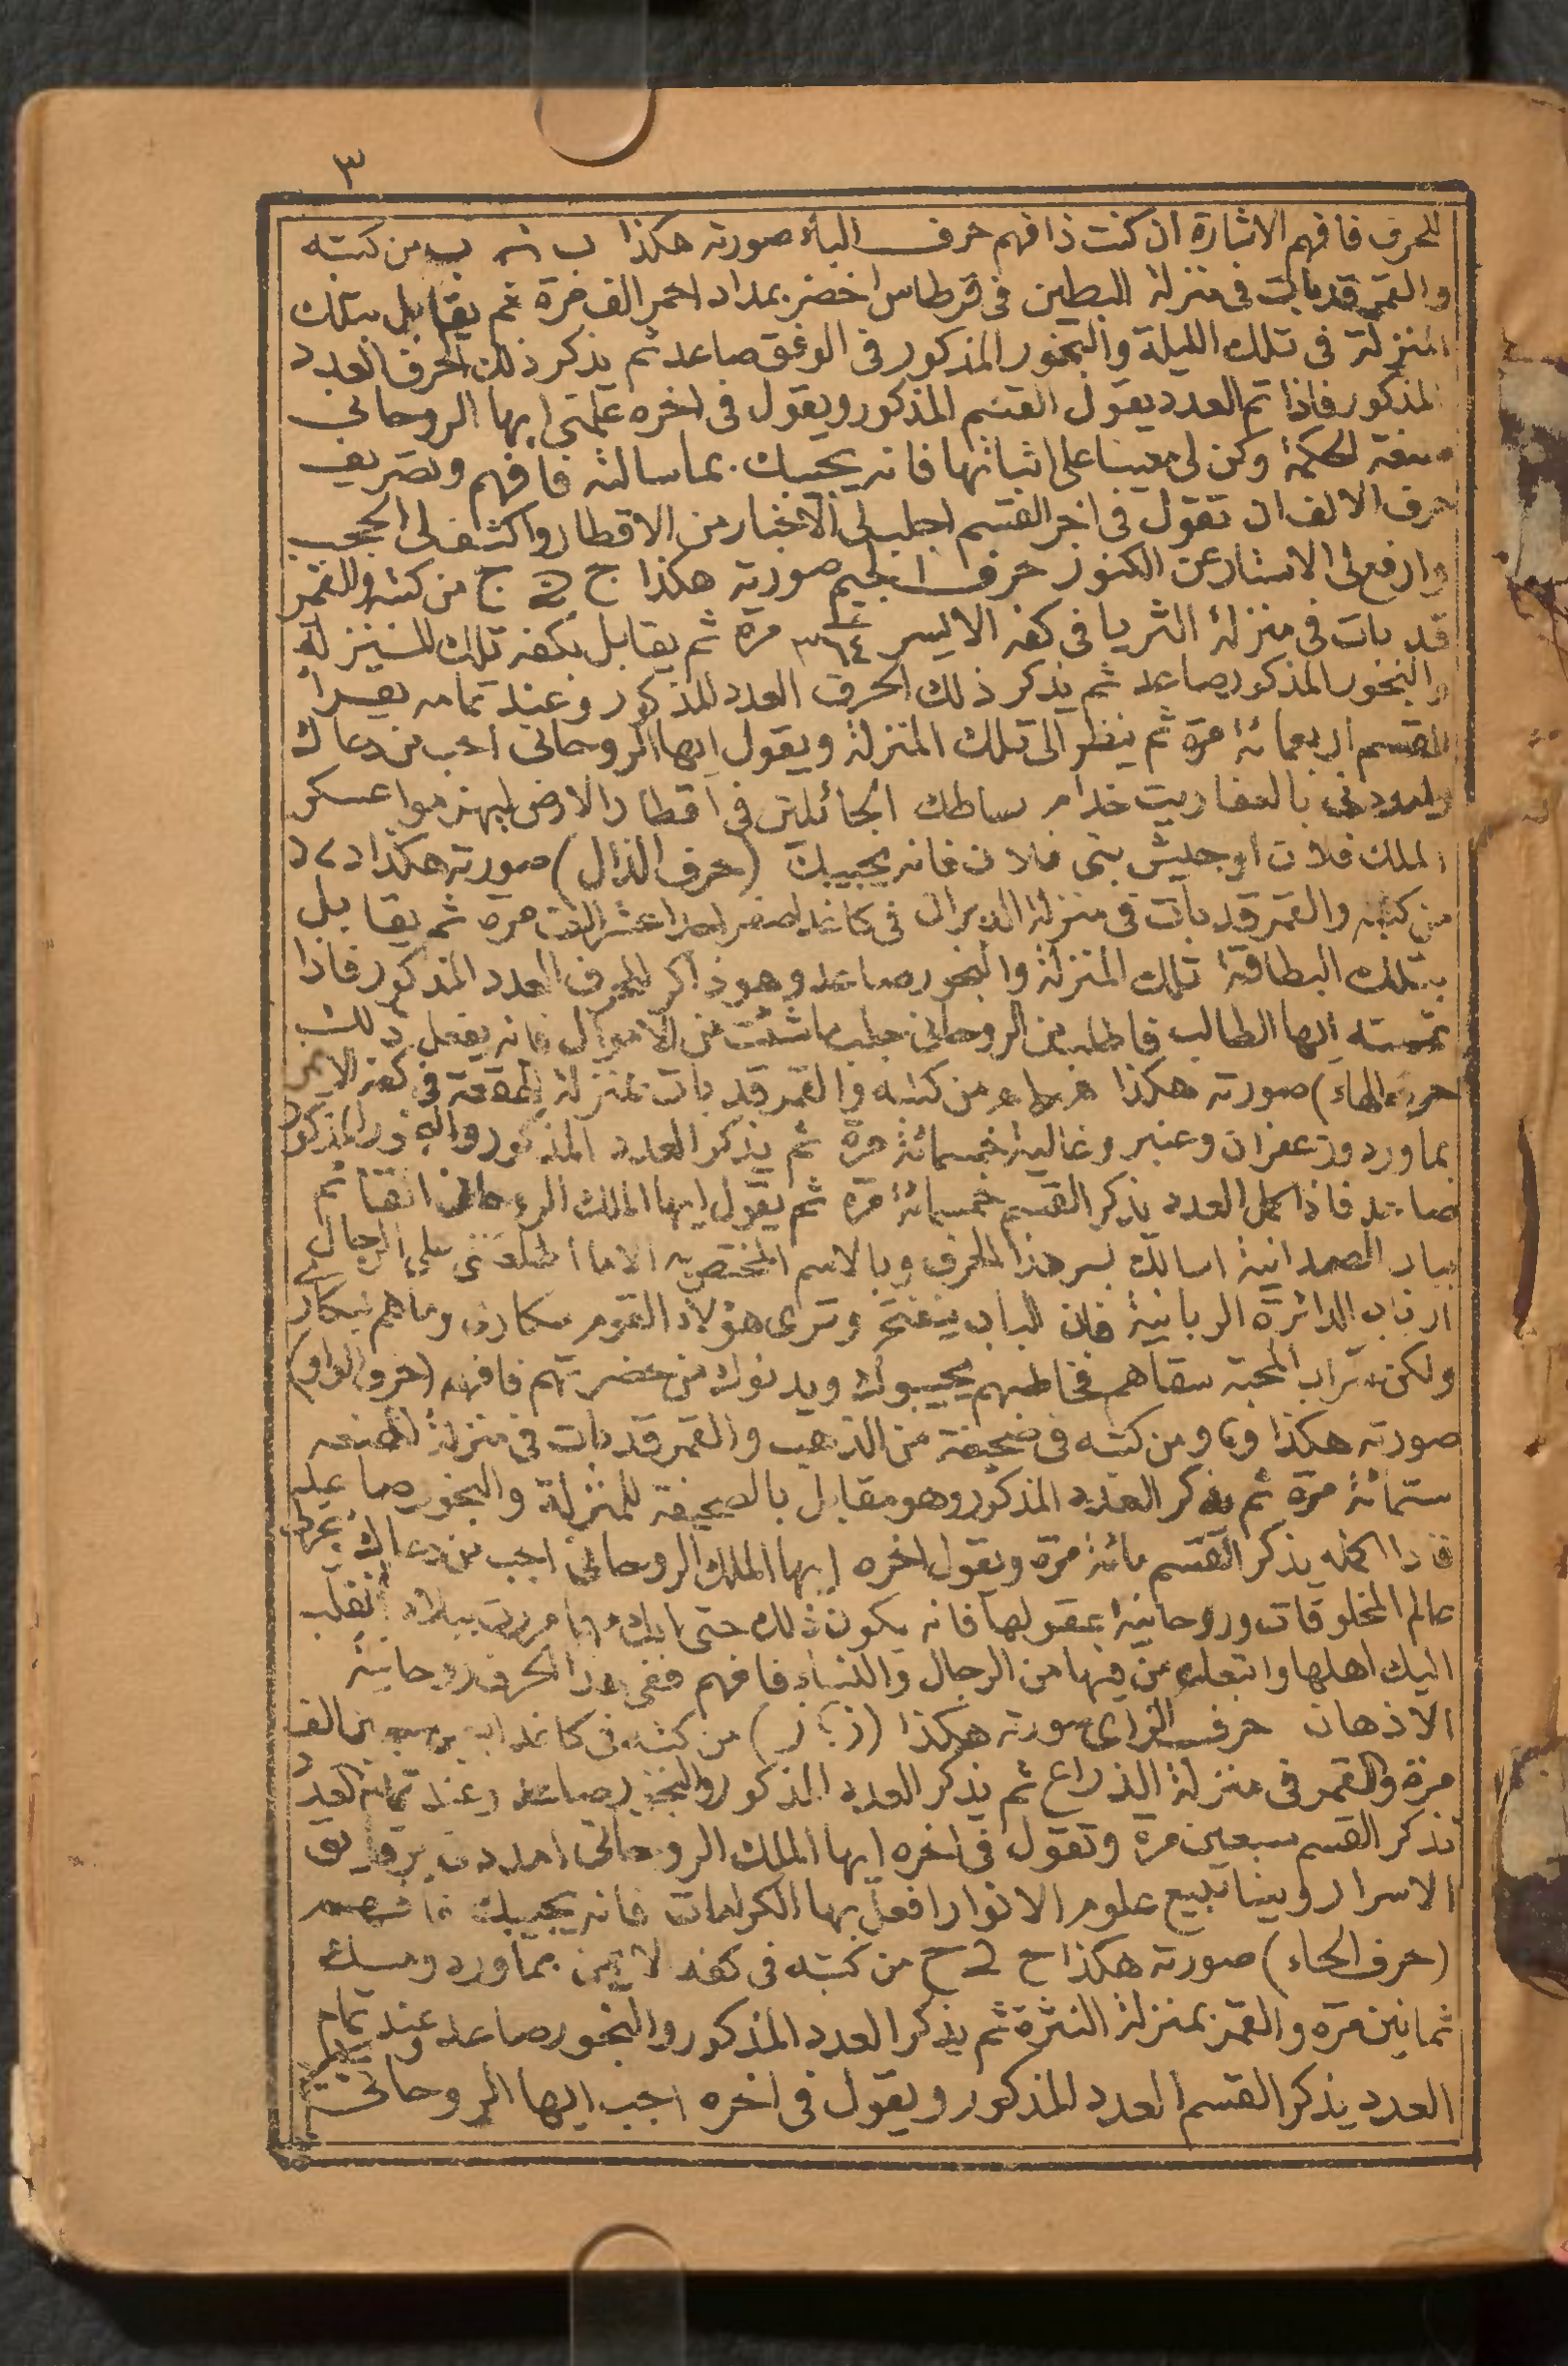 ٣
للحرف فافهم الاشارة ان كنت ذا فهم حرف الباء صورته هكذا ب ب من كتبه
والقمر قد بات فى منزلة البطين فى قرطاس اخضر بمداد احمر الف مرة ثم يقابل بتلك
المنزلة فى تلك الليلة والبخور المذكور فى الوفق صاعد ثم يذكر ذلك الحرف العدد
المذكور فاذا تم العدد يقول القسم المذكور ويقول فى اخره علمنى ايها الروحانى
صنعة الحكمة وكن لى معينا على اثباتها فانه يجيبك بما سالته فافهم وتصريف
حرف الالف ان تقول فى اخر القسم اجلب لى الاخبار من الاقطار واكشف لى الحجب
وارفع لى الاستار عن الكنوز حرف الجيم صورته هكذا ج ج من كتبه والقمر
قد بات فى منزلة الثريا فى كفه الايسر ٣٦٤ مرة ثم يقابل بكفه تلك المنزلة
والبخور المذكور صاعد ثم يذكر ذلك الحرف العدد المذكور وعند تمامه يقرأ
القسم اربعمائة مرة ثم ينظر الى تلك المنزلة ويقول ايها الروحانى اجب من دعاك
وامددنى بالعفاريت خدام بساطك الجائلين فى اقطار الارض ليهزموا عسكر
الملك فلان او جيش بنى فلان فانه يجيبك (حرف الذال) صورته هكذا د د
من كتبه والقمر قد بات فى منزلة الدبران فى كاغد اصفر مرة ثم يقابل
بتلك البطاقة تلك المنزلة والبخور صاعد وهو ذاكر للحرف العدد المذكور فاذا
تممته ايها الطالب فاطلب من الروحانى جلب ما شئت من الاموال فانه يفعل ذلك
حرف الهاء) صورته هكذا من كتبه والقمر قد بات بمنزلة الهقعة فى كفه الايمن
بماورد وزعفران وعنبر وغالية خمسمائة مرة ثم يذكر العدد المذكور والبخور المذكور
صاعد فاذا كمل العدد يذكر القسم خمسمائة مرة ثم يقول ايها الملك الروحانى القائم
بباب الصمدانية اسالك بسر هذا الحرف وبالاسم المختص به الا ما اطلعتنى على الرجال
ارباب الدائرة الربانية فان الباب ينفتح وترى هؤلاء القوم سكارى وما هم بسكارى
ولكن شراب المحبة سقاهم فخاطبهم يجيبوك ويدنوك من حضرتهم فافهم (حرف الواو)
صورته هكذا و و من كتبه فى صحيفة من الذهب والقمر قد بات فى منزلة الهنعه
ستمائة مرة ثم يذكر العدد المذكور وهو مقابل بالصحيفة للمنزلة والبخور صاعد
فاذا اكمله يذكر القسم مائة مرة ويقول اخره ايها الملك الروحانى اجب من دعاك بحرك
عالم المخلوقات وروحانية بعقولها فانه يكون ذلك حتى انك مررت ببلاد انقلب
اليك اهلها واتبعك من فيها من الرجال والنساء فافهم ففى هذا الحرف روحانية
الاذهان حرف الزاى صورته هكذا (ز ز) من كتبه فى كاغد الف
مرة والقمر فى منزلة الذراع ثم يذكر العدد المذكور والبخور صاعد وعند تمام العدد
تذكر القسم سبعين مرة وتقول فى اخره ايها الملك الروحانى امددنى
الاسرار وبينابيع علوم الانوار افعل بها الكرامات فانه يجيبك فافهم
(حرف الحاء) صورته هكذا ح ح من كتبه فى كفه الايمن بماورد ومسك
ثمانين مرة والقمر بمنزلة النثرة ثم يذكر العدد المذكور والبخور صاعد وعند تمام
العدد يذكر القسم العدد المذكور ويقول فى اخره اجب ايها الروحانى